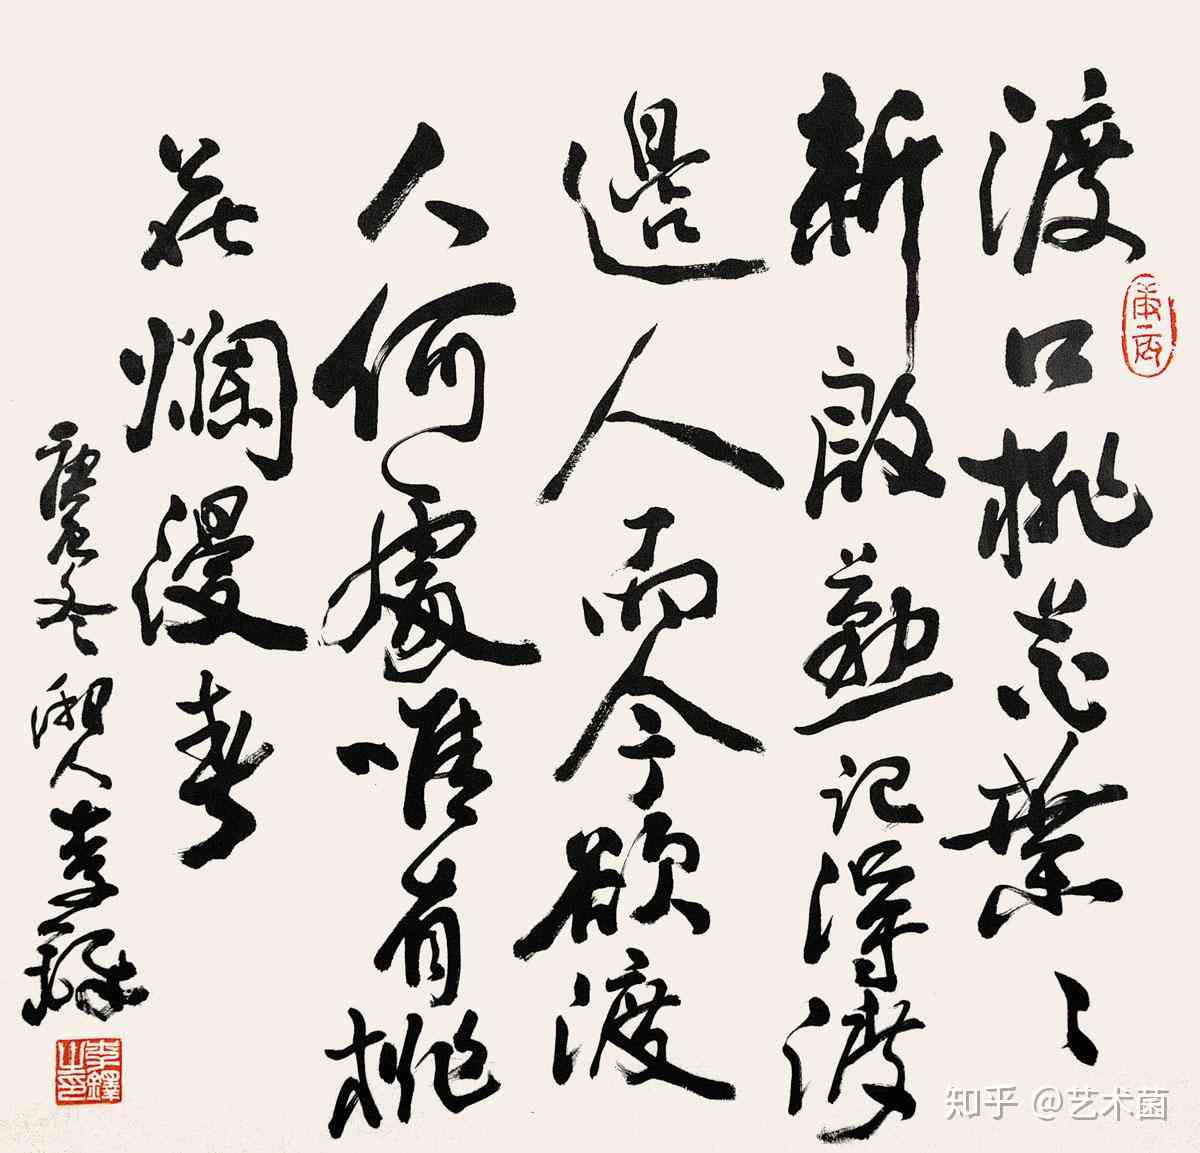 渡口桃花葉々
新殷勤記得渡
邊人而今欲渡
人何處唯有桃
花爛漫春
庚辰冬湘人李鐸
李鐸之印
知乎 @艺术菌